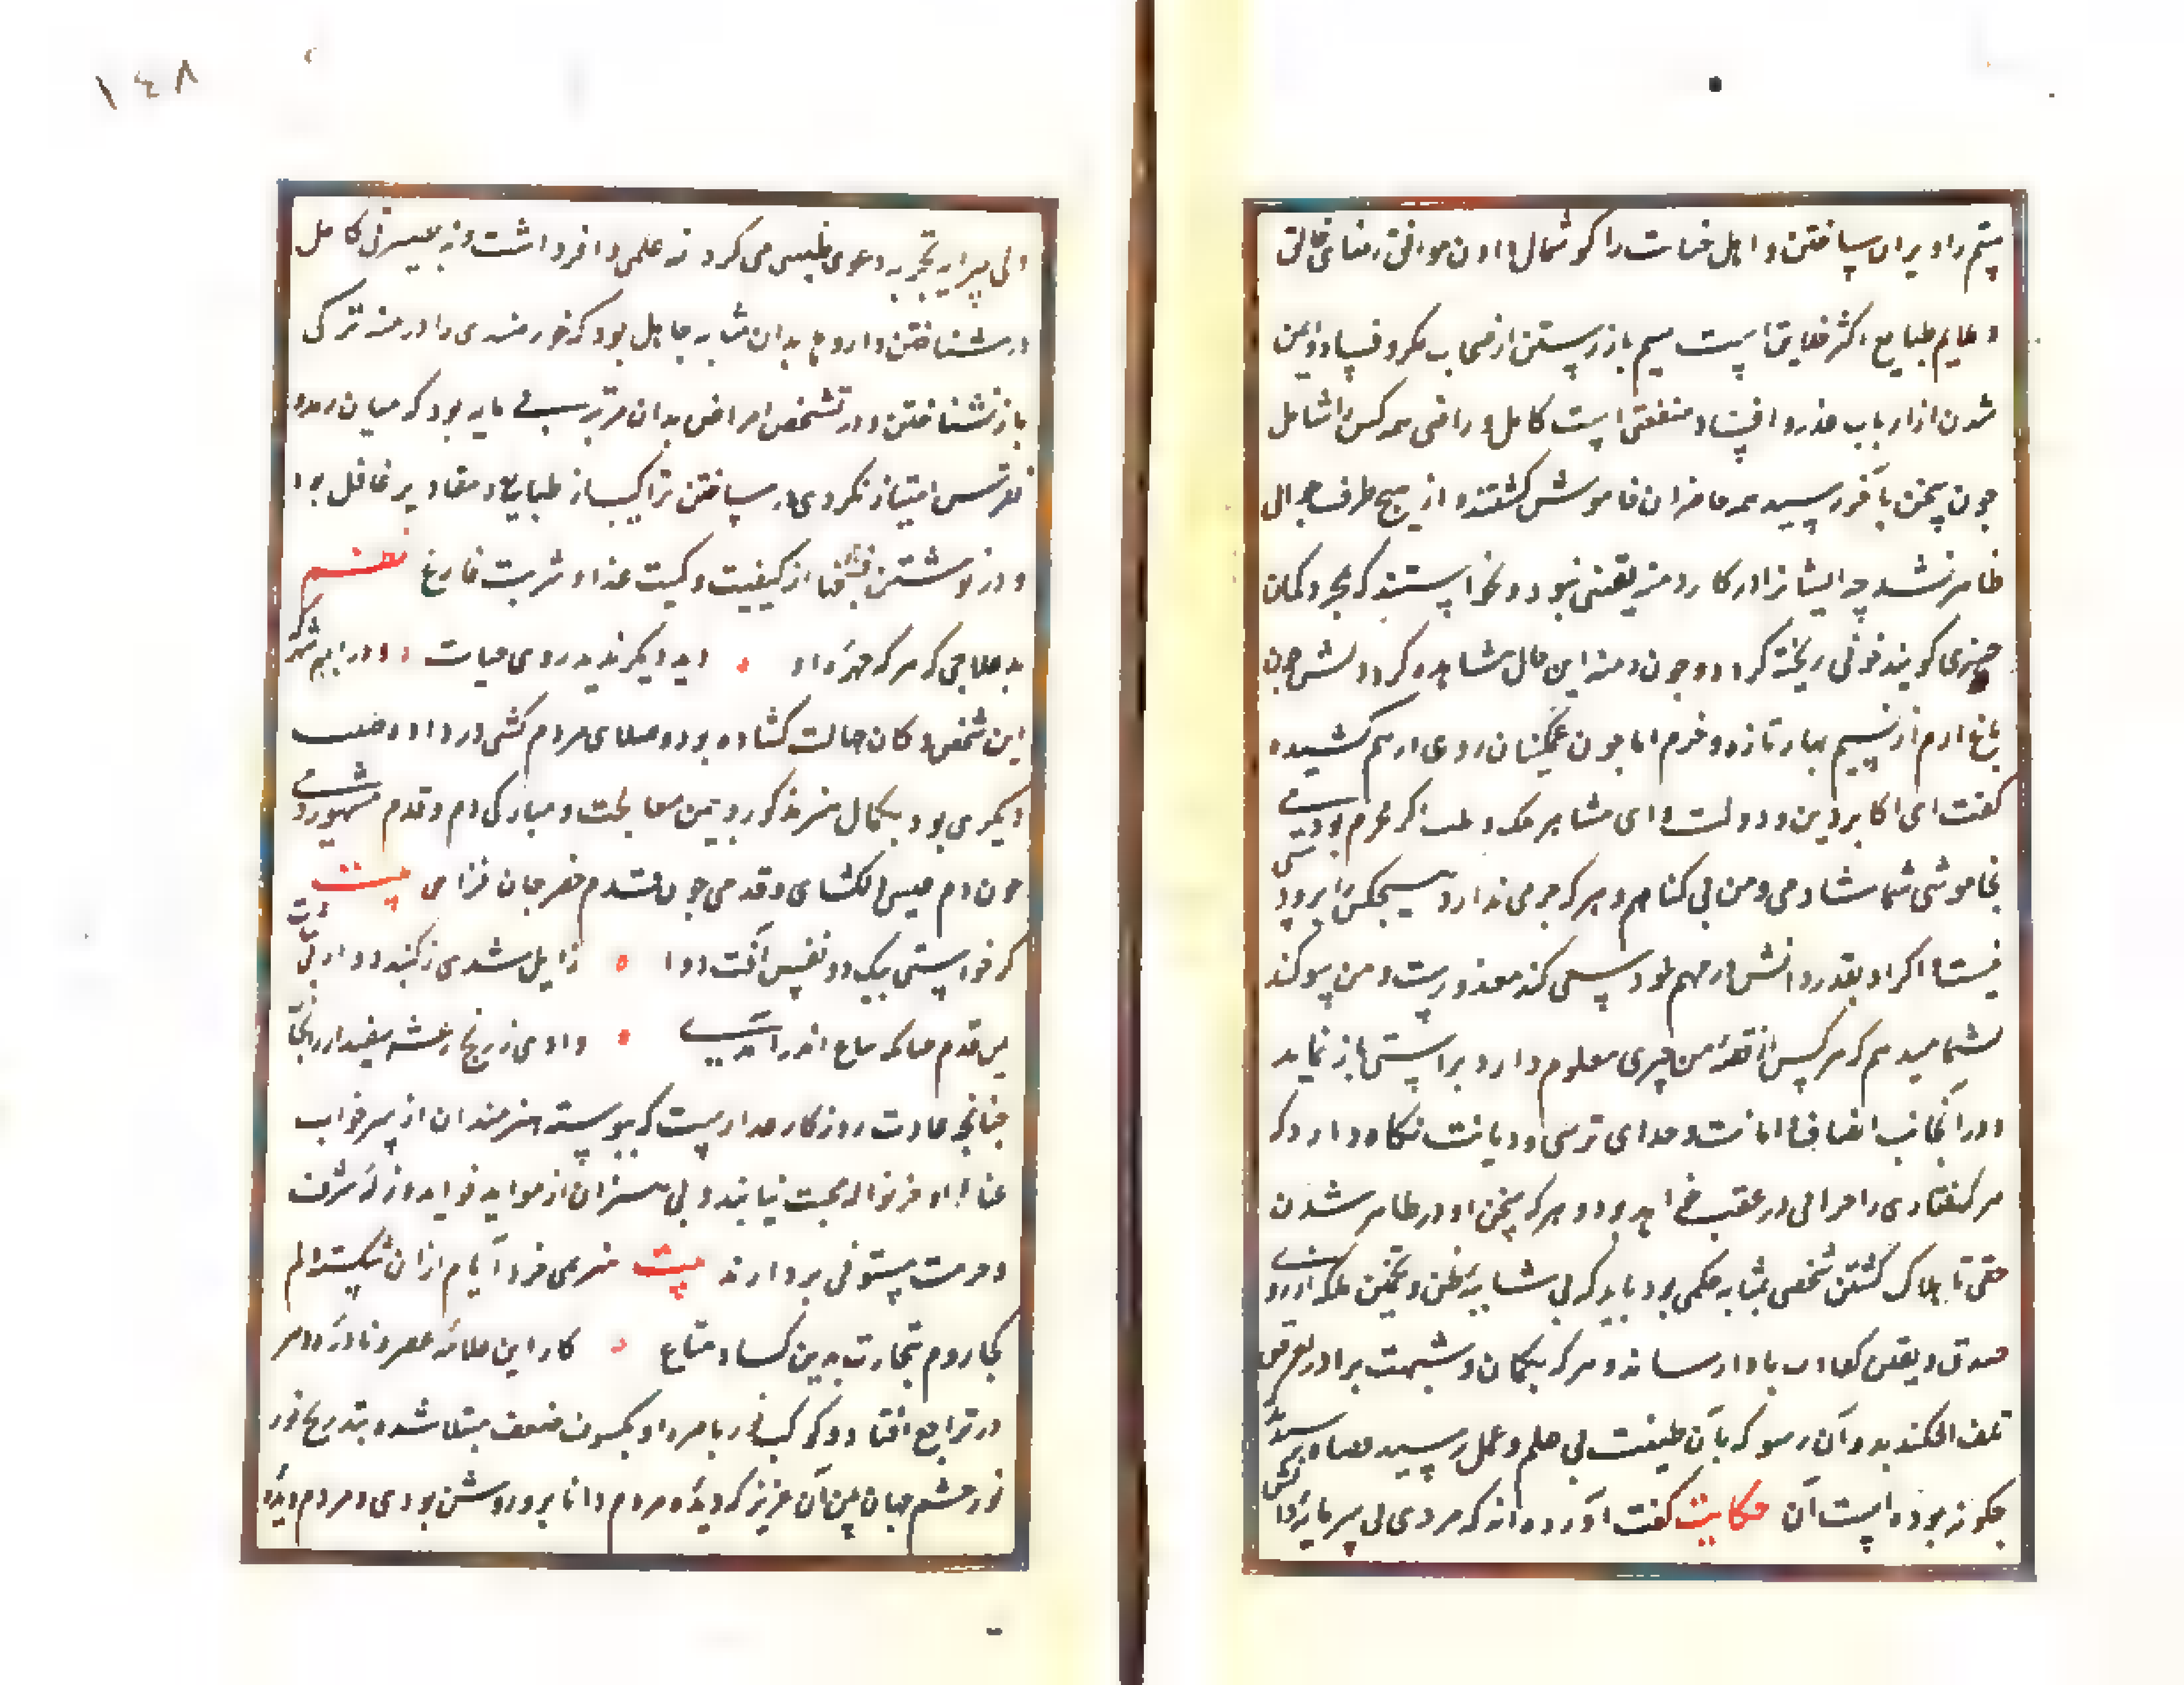 ستم را ویران ساختن و اهل خیانت را گوشمال دادن موافق رضای خالق
و ملایم طبایع اکثر خلایق است سیم باز رستن از اصحاب مکر و فساد و ایمن
شدن از ارباب غدر و افساد منفعتی است کامل و راحتی همه کس را شامل
چون سخن بآخر رسید همه حاضران خاموش گشتند و از هیچ طرف جوابی
ظاهر نشد چه ایشانرا در کار دمنه یقینی نبود و نخواستند که بمجرد گمان
چیزی گویند خونی ریخته گردد و چون دمنه این حال مشاهده کرد دلش چون
باغ ارم از نسیم بهار تازه و خرم اما چون غمگینان روی در هم کشیده
گفت ای اکابر دین و دولت و ای مشاهیر ملک و ملت اگر مجرم بودمی
بخاموشی شما شادمی و من بی گناهم و هر که جرمی ندارد هیچکس را برو دستی
نیست و اگر او بقدر دانش در مهم خود سعی کند معذورست و من سوگند
بشما میدهم که هر کس از قصه من چیزی معلوم دارد براستی باز نماید
و در آنجانب انصاف و امانت و خدای ترسی و دیانت نگاه دارد که
هر گفتاری را جزائی در عقب خواهد بود و هر که سخن او در ظاهر شدن
حقی تا هلاک گشتن شخصی بمثابه حکمی بود باید که بی شایبه ظن و تخمین بلکه از روی
صدق و یقین گواهی باز رساند و هر که بگمان و شبهت مرا در معرض
تلف افکند بدو آن رسد که بآن طبیب بی علم و عمل رسید قضاة پرسیدند که
چگونه بوده است آن حکایت گفت آورده اند که مردی بی سرمایه دانش
و بی پیرایه تجربه دعوی طبیبی می کرد نه علمی وافر داشت و نه بصیرتی کامل
در شناختن داروها بدان مثابه جاهل بود که خور هندی را از درمنه ترکی
باز نشناختی و در تشخیص امراض بدان مرتبه بی مایه بود که میان رمد و
نقرس امتیاز نکردی در ساختن تراکیب از طبایع و مقادیر غافل بود
و در نوشتن نسخها از کیفیت و کمیت غذا و شربت فارغ نظم
بد علاجی که هر که چهره او دید دیگر ندید روی حیات و در این شهر که
این شخص دکان جهالت گشاده بود و صلای مردم کشی در داده طبیب
دیگری بود بکمال هنر مذکور و بیمن معالجت و مبارکی دم و قدم مشهور دمی
چون دم عیسی دلکشای و قدمی چون قدم خضر جان فزای بیت
گر خواستی بیک دو نفس آفت دوار زایل شدی ز گنبد دوار بی ثبات
یمن قدم چنانکه بباغ اندر آمدی دادی ز رنج رعشه سفیدار را نجات
چنانچه عادت روزگار غدارست که پیوسته هنرمندان از سر خواب
عنا او جز نواله محنت نیابند و بی هنران از مواید فواید او زله شرف
و حرمت مستوفی بردارند بیت هنر می خرد ایام ازان شکسته دلم
کجا روم بتجارت بدین کساد متاع کار این علامه عصر و نادره دهر
در تراجع افتاد و کوکب نور باصره او بکسوف ضعف مبتلا شده بتدریج نور
از چشم جهان بین آن عزیز که دیده مردم دانا برو روشن بودی و مردم دیده
۱٤۸